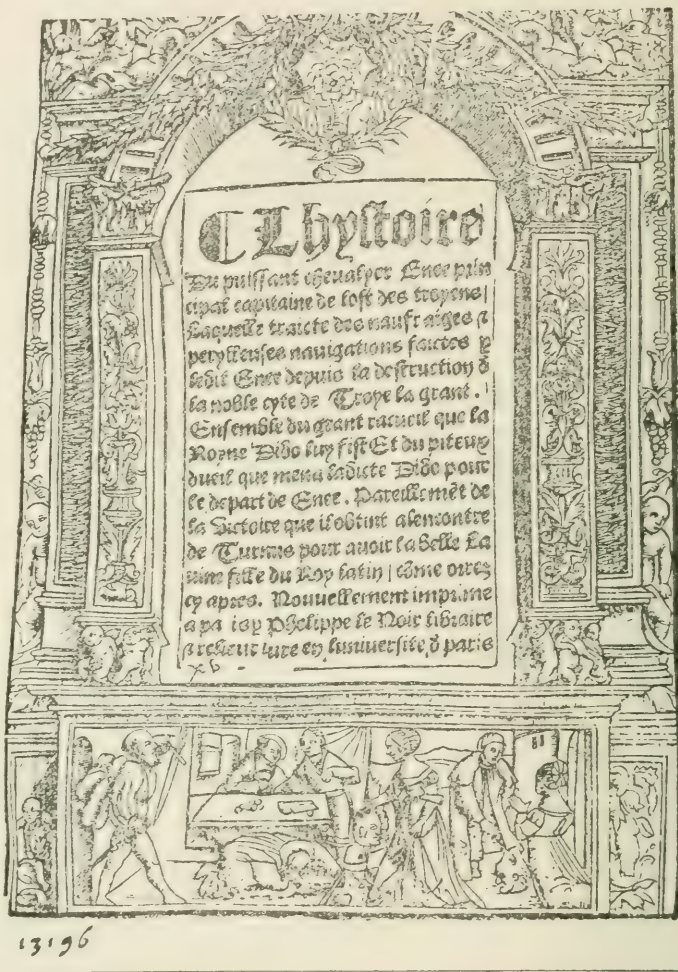 ¶ Lhystoire
Du puissant chevalyer Enee prin
cipal capitaine de lost des troyens /
Laquelle traicte des naufraiges ⁊
peryllenses nauigations faictes p
ledit Enee depuis la destruction d
la noble cyte de Troye la grant .
Ensemble du grant racueil que la
Royne Dido luy fist Et du piteux
dueil que mena ladicte Dido pour
le depart de Enee . Pareillemēt de
la Victoire que il obtint alencontre
de Turnus pour auoir la belle La
uine fille du Roy latin / cōme orrez
cy apres . Nouuellement imprime
a pa Phelippe le Noir libraire
⁊ relieur iure en luniuersite d paris
13196